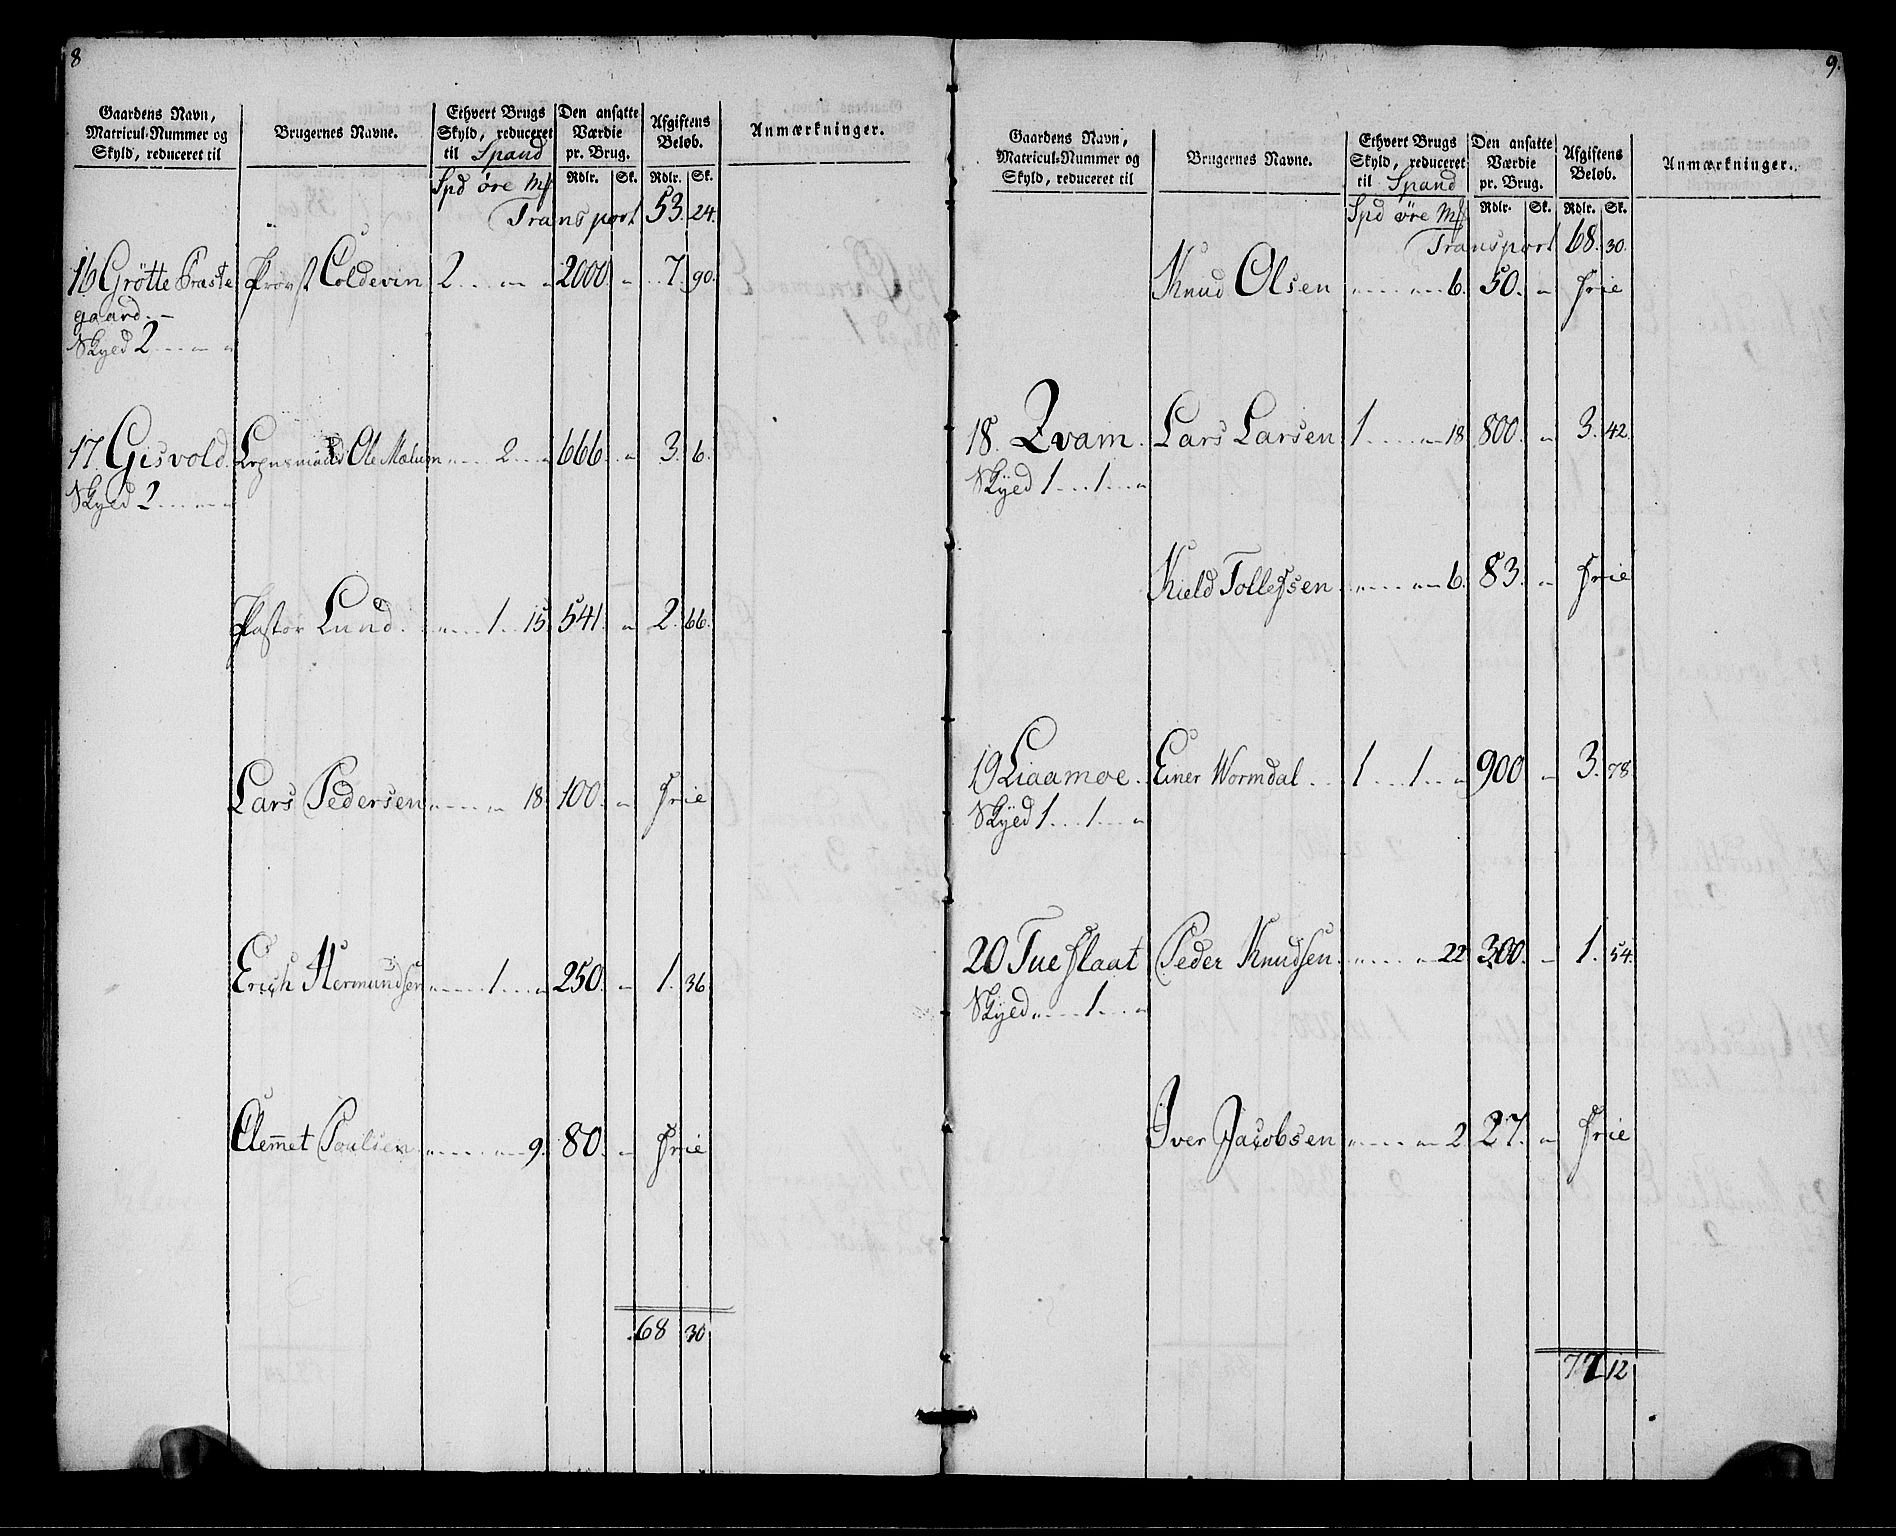 8
Gaardens Navn, Matricul-Nummer og Skyld, reduceret til | Brugernes Navne. | Ethvert Brugs Skyld, reduceret til Spand | Den ansatte Værdie pr. Brug. | Afgiftens Beløb. | Anmærkninger.
Spd øre mk | Rdlr. Sk. | Rdlr. Sk.
Transport 53. 24.
16 Grøtte Præste Provst Coldevin 2 . . „ „ 2000. „ 7. 90.
gaard. –
Skyed 2 . . „ „
17. Gisvold. Lognsmand Ole Mælum „ . . 2 . . „ 666. „ 3. 6.
Skyed 2 . . . „ „
Pastor Lund. „ . . 1 . . 15. 541. „ 2. 66.
Lars Pedersen „ . . „ 18. 100. „ frie
Erich Hermundsen „ . . 1 . . „ 250. „ 1. 36.
Clemmet Poulsen „ . . „ 9. 80. „ frie
68 30
9.
Gaardens Navn, Matricul-Nummer og Skyld, reduceret til | Brugernes Navne. | Ethvert Brugs Skyld, reduceret til Spand | Den ansatte Værdie pr. Brug. | Afgiftens Beløb. | Anmærkninger.
Spd øre mk | Rdlr. Sk. | Rdlr. Sk.
Transport 68. 30.
Knud Olsen „ . . „ 6. 50. „ frie
18. Qvam. Lars Larsen 1 . . „ 18 800. „ 3. 42.
Skyed 1 . . 1 . . „
Kield Tollefsen „ . . „ 6. 83. „ frie
19 Liaamoe. Einer Wormdal . . 1 . . 1 . . „ 900 „ 3. 78.
Skyed 1 . . 1 . . „
20 Tueflaat Peder Knudsen „ . . „ 22 300. „ 1. 54.
Skyed „ . . 1 . . „
Iver Jacobsen „ . . „ 2. 27. „ frie
77 12